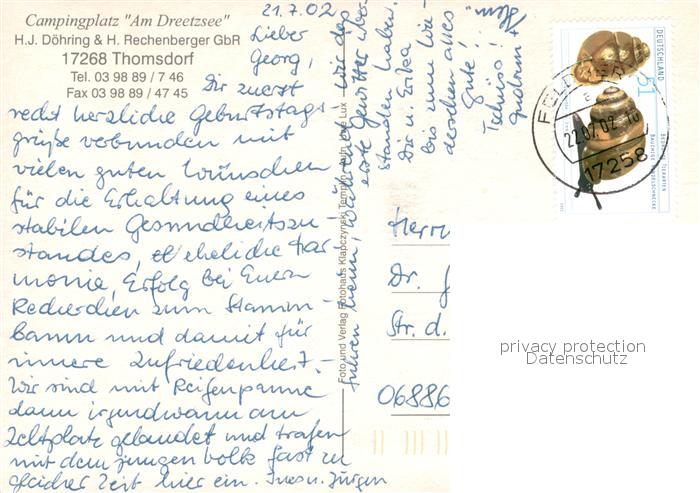 Campingplatz "Am Dreetzsee"
H.J. Döhring & H. Rechenberger GbR
17268 Thomsdorf
Tel. 03 98 89 / 7 46
Fax 03 98 89 / 47 45
21.7.02
Lieber
Georg,
Dir zuerst
recht herzliche Geburtstags-
grüße verbunden mit
vielen guten Wünschen
für die Erhaltung eines
stabilen Gesundheitszu-
standes, eheliche Har-
monie, Erfolg bei Euern
Recherchen zum Stamm-
baum und damit für
innere Zufriedenheit.-
Wir sind mit Reifenpanne
dann irgendwann am
Zeltplatz gelandet und trafen
mit dem jungen Volk fast zu
gleicher Zeit hier ein. Ines u. Jürgen
fuhren heim, wir das
erste Gewitter über-
standen haben.
Dir u. Erika
bis zum Wie-
dersehen alles
Gute!
Tschüss!
Gudrun +
Foto und Verlag Fotohaus Klapczynski Templin, Inh. Lux
Herrn
Dr.
Str. d.
06886
DEUTSCHLAND
51
22.07.02
17258
privacy protection
Datenschutz